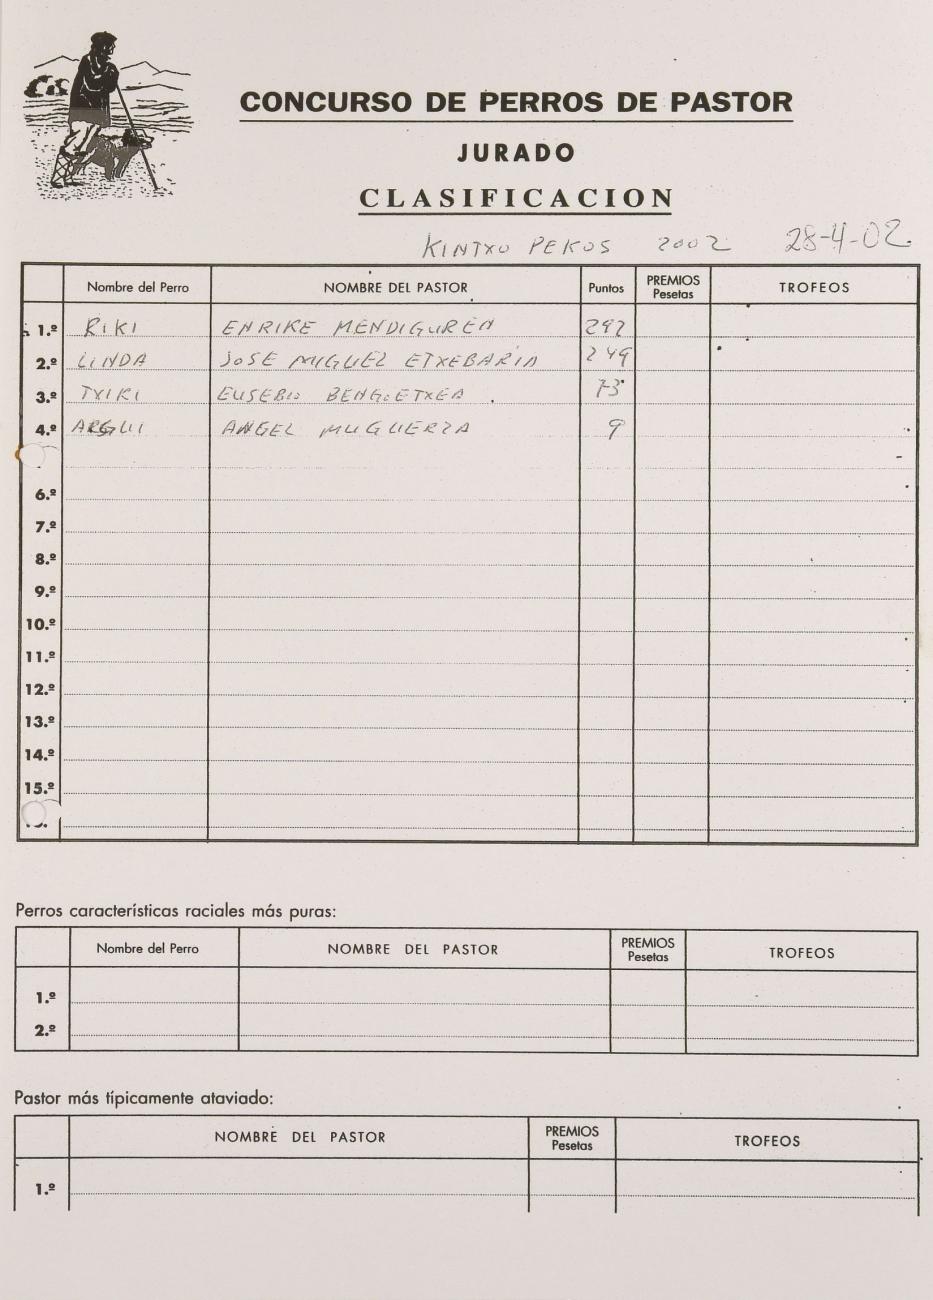 CONCURSO DE PERROS DE PASTOR
JURADO
CLASIFICACION
KINTXO PEKOS 2002 28-4-02
Nombre del Perro NOMBRE DEL PASTOR Puntos PREMIOS Pesetas TROFEOS
1.º RIKI ENRIKE MENDIGUREN 292
2.º LINDA JOSE MIGUEL ETXEBARIA 249
3.º TXIKI EUSEBIO BENGOETXEA 73
4.º ARGUI ANGEL MUGUERZA 9
6.º
7.º
8.º
9.º
10.º
11.º
12.º
13.º
14.º
15.º
Perros características raciales más puras:
Nombre del Perro NOMBRE DEL PASTOR PREMIOS Pesetas TROFEOS
1.º
2.º
Pastor más típicamente ataviado:
NOMBRE DEL PASTOR PREMIOS Pesetas TROFEOS
1.º